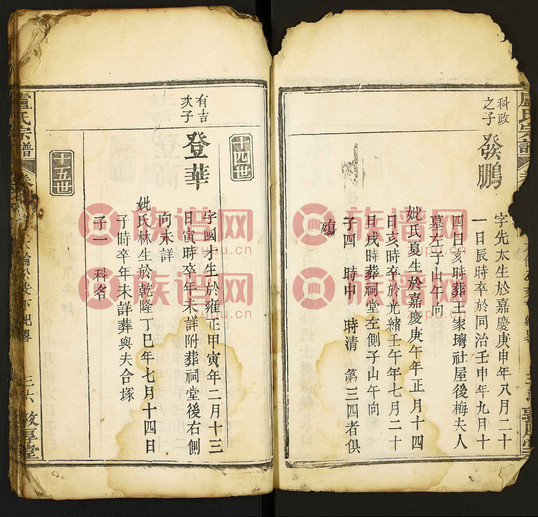 科政
之子
發鵬
字先太生於嘉慶庚申年八月二十
一日辰時卒於同治壬申年九月十
四日亥時葬王家壪社屋後梅夫人
墓左子山午向
妣氏夏生於嘉慶庚午年正月十四
日亥時卒於光緒壬午年七月二十
日戌時葬祠堂左側子山午向
子四 時中 時清 第三四者俱
殤
盧氏宗譜
十四世
有吉
次子
登華
字國才生於雍正甲寅年二月十三
日寅時卒年未詳附葬祠堂後右側
向未詳
妣氏林生於乾隆丁巳年七月十四日
子時卒年未詳葬與夫合塚
子一 科名
十五世
盧氏宗譜
三六
敦厚堂
族谱网
zupu.cn
族谱网
zupu.cn
族谱网
zupu.cn
族谱网
zupu.cn